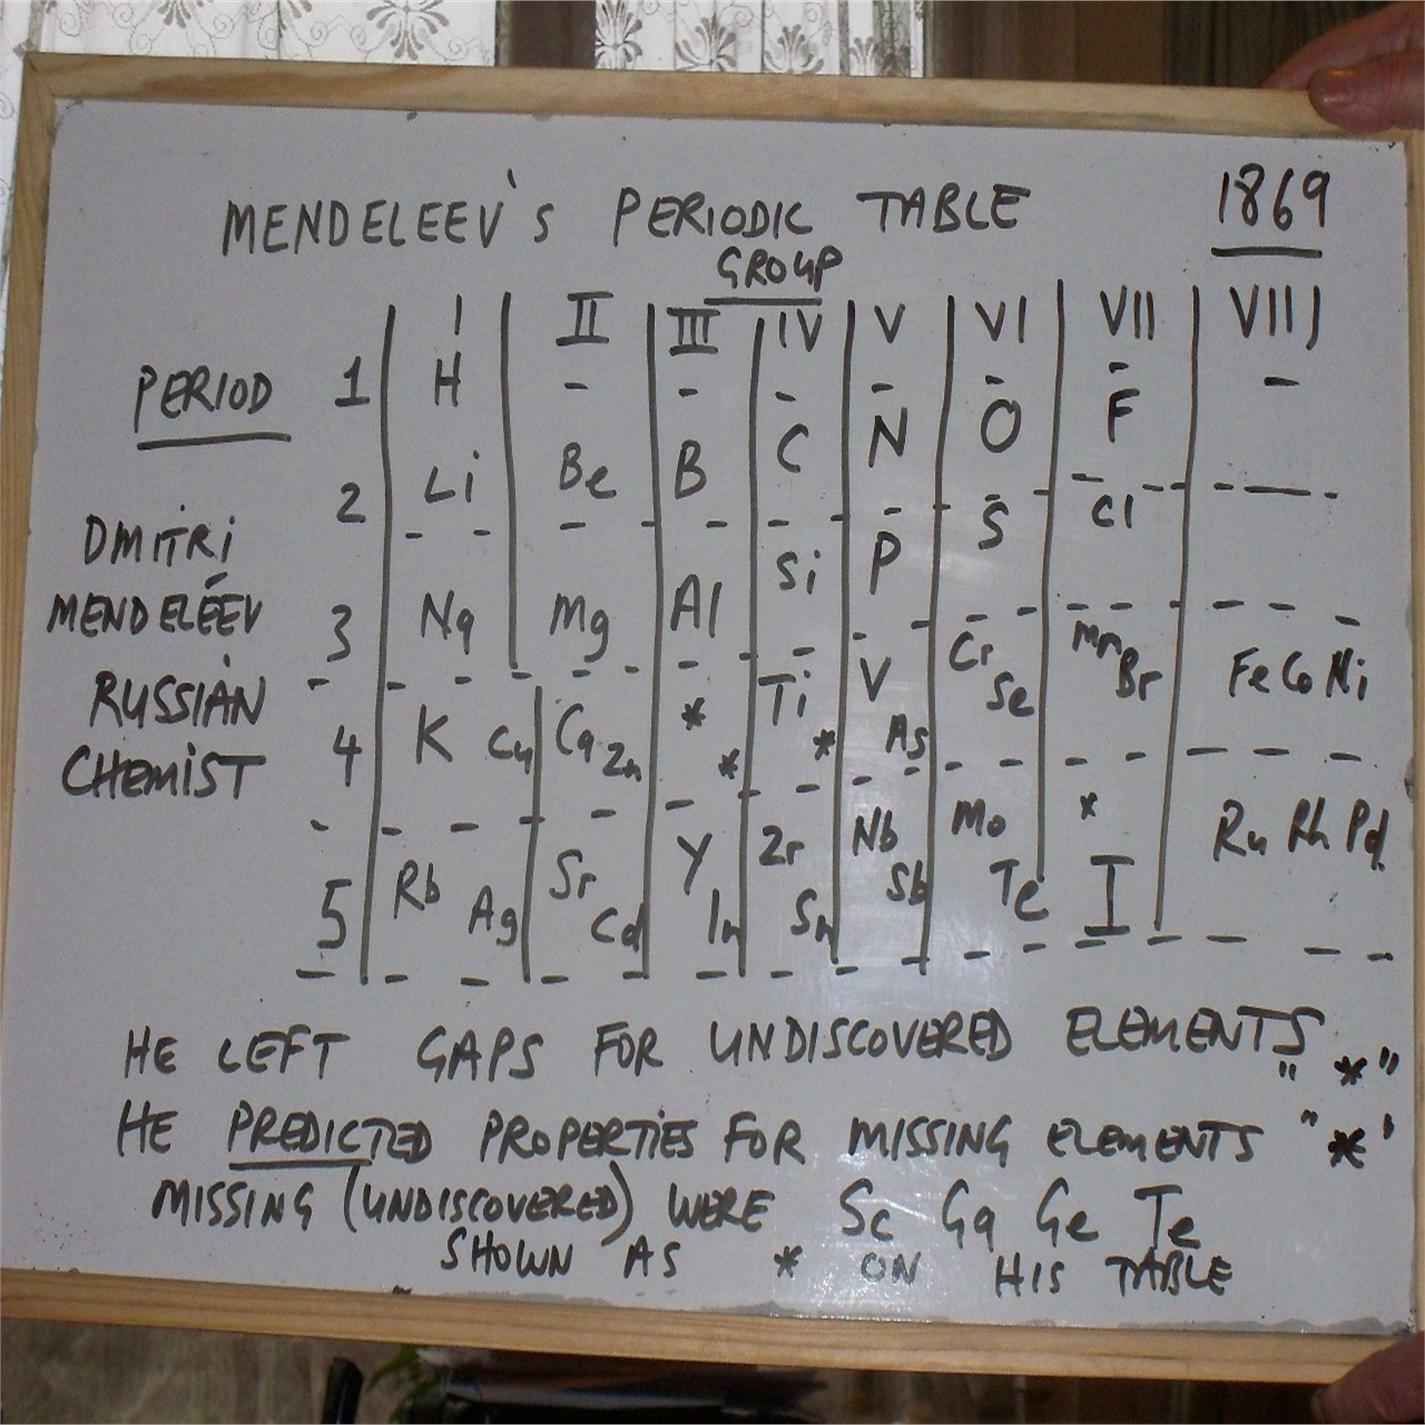 MENDELEEV'S PERIODIC TABLE 1869
GROUP
I II III IV V VI VII VIII
PERIOD 1 H - - - - - - -
2 Li Be B C N O F
3 Na Mg Al Si P S Cl
4 K Cu Ca Zn * * Ti * V As Cr Se Mn Br Fe Co Ni
5 Rb Ag Sr Cd Y In Zr Sn Nb Sb Mo Te * I Ru Rh Pd
DMITRI
MENDELÉEV
RUSSIAN
CHEMIST
HE LEFT GAPS FOR UNDISCOVERED ELEMENTS "*"
HE PREDICTED PROPERTIES FOR MISSING ELEMENTS "*'
MISSING (UNDISCOVERED) WERE Sc Ga Ge Te
SHOWN AS * ON HIS TABLE